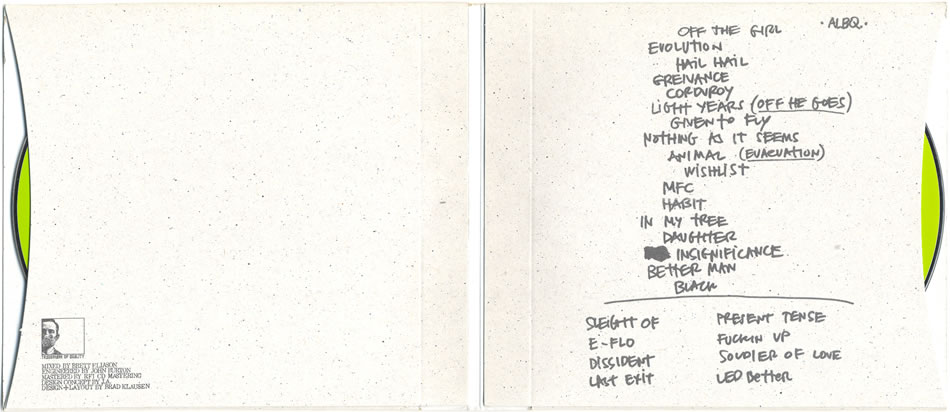 TRADEMARK OF QUALITY
MIXED BY BRETT ELIASON
ENGINEERED BY JOHN BURTON
MASTERED BY RFI CD MASTERING
DESIGN CONCEPT BY J.A.
DESIGN+LAYOUT BY BRAD KLAUSEN
·ALBQ·
OFF THE GIRL
EVOLUTION
HAIL HAIL
GREIVANCE
CORDUROY
LIGHT YEARS (OFF HE GOES)
GIVEN to FLY
NOTHING AS IT SEEMS
ANIMAL (EVACUATION)
WISHLIST
MFC
HABIT
IN MY TREE
DAUGHTER
INSIGNIFICANCE
BETTER MAN
BLACK
SLEIGHT OF
E-FLO
DISSIDENT
LAST EXIT
PRESENT TENSE
FUCKIN UP
SOLDIER OF LOVE
LEDBETTER